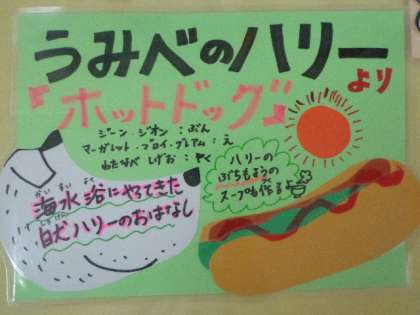 うみべのハリー
より
『ホットドッグ』
ジーン ジオン：ぶん
マーガレット・ブロイ・グレアム：え
わたなべ しげお：やく
ハリーの
ぶちもようの
スープも作る
かいすいよく
海水浴にやってきた
白犬ハリーのおはなし